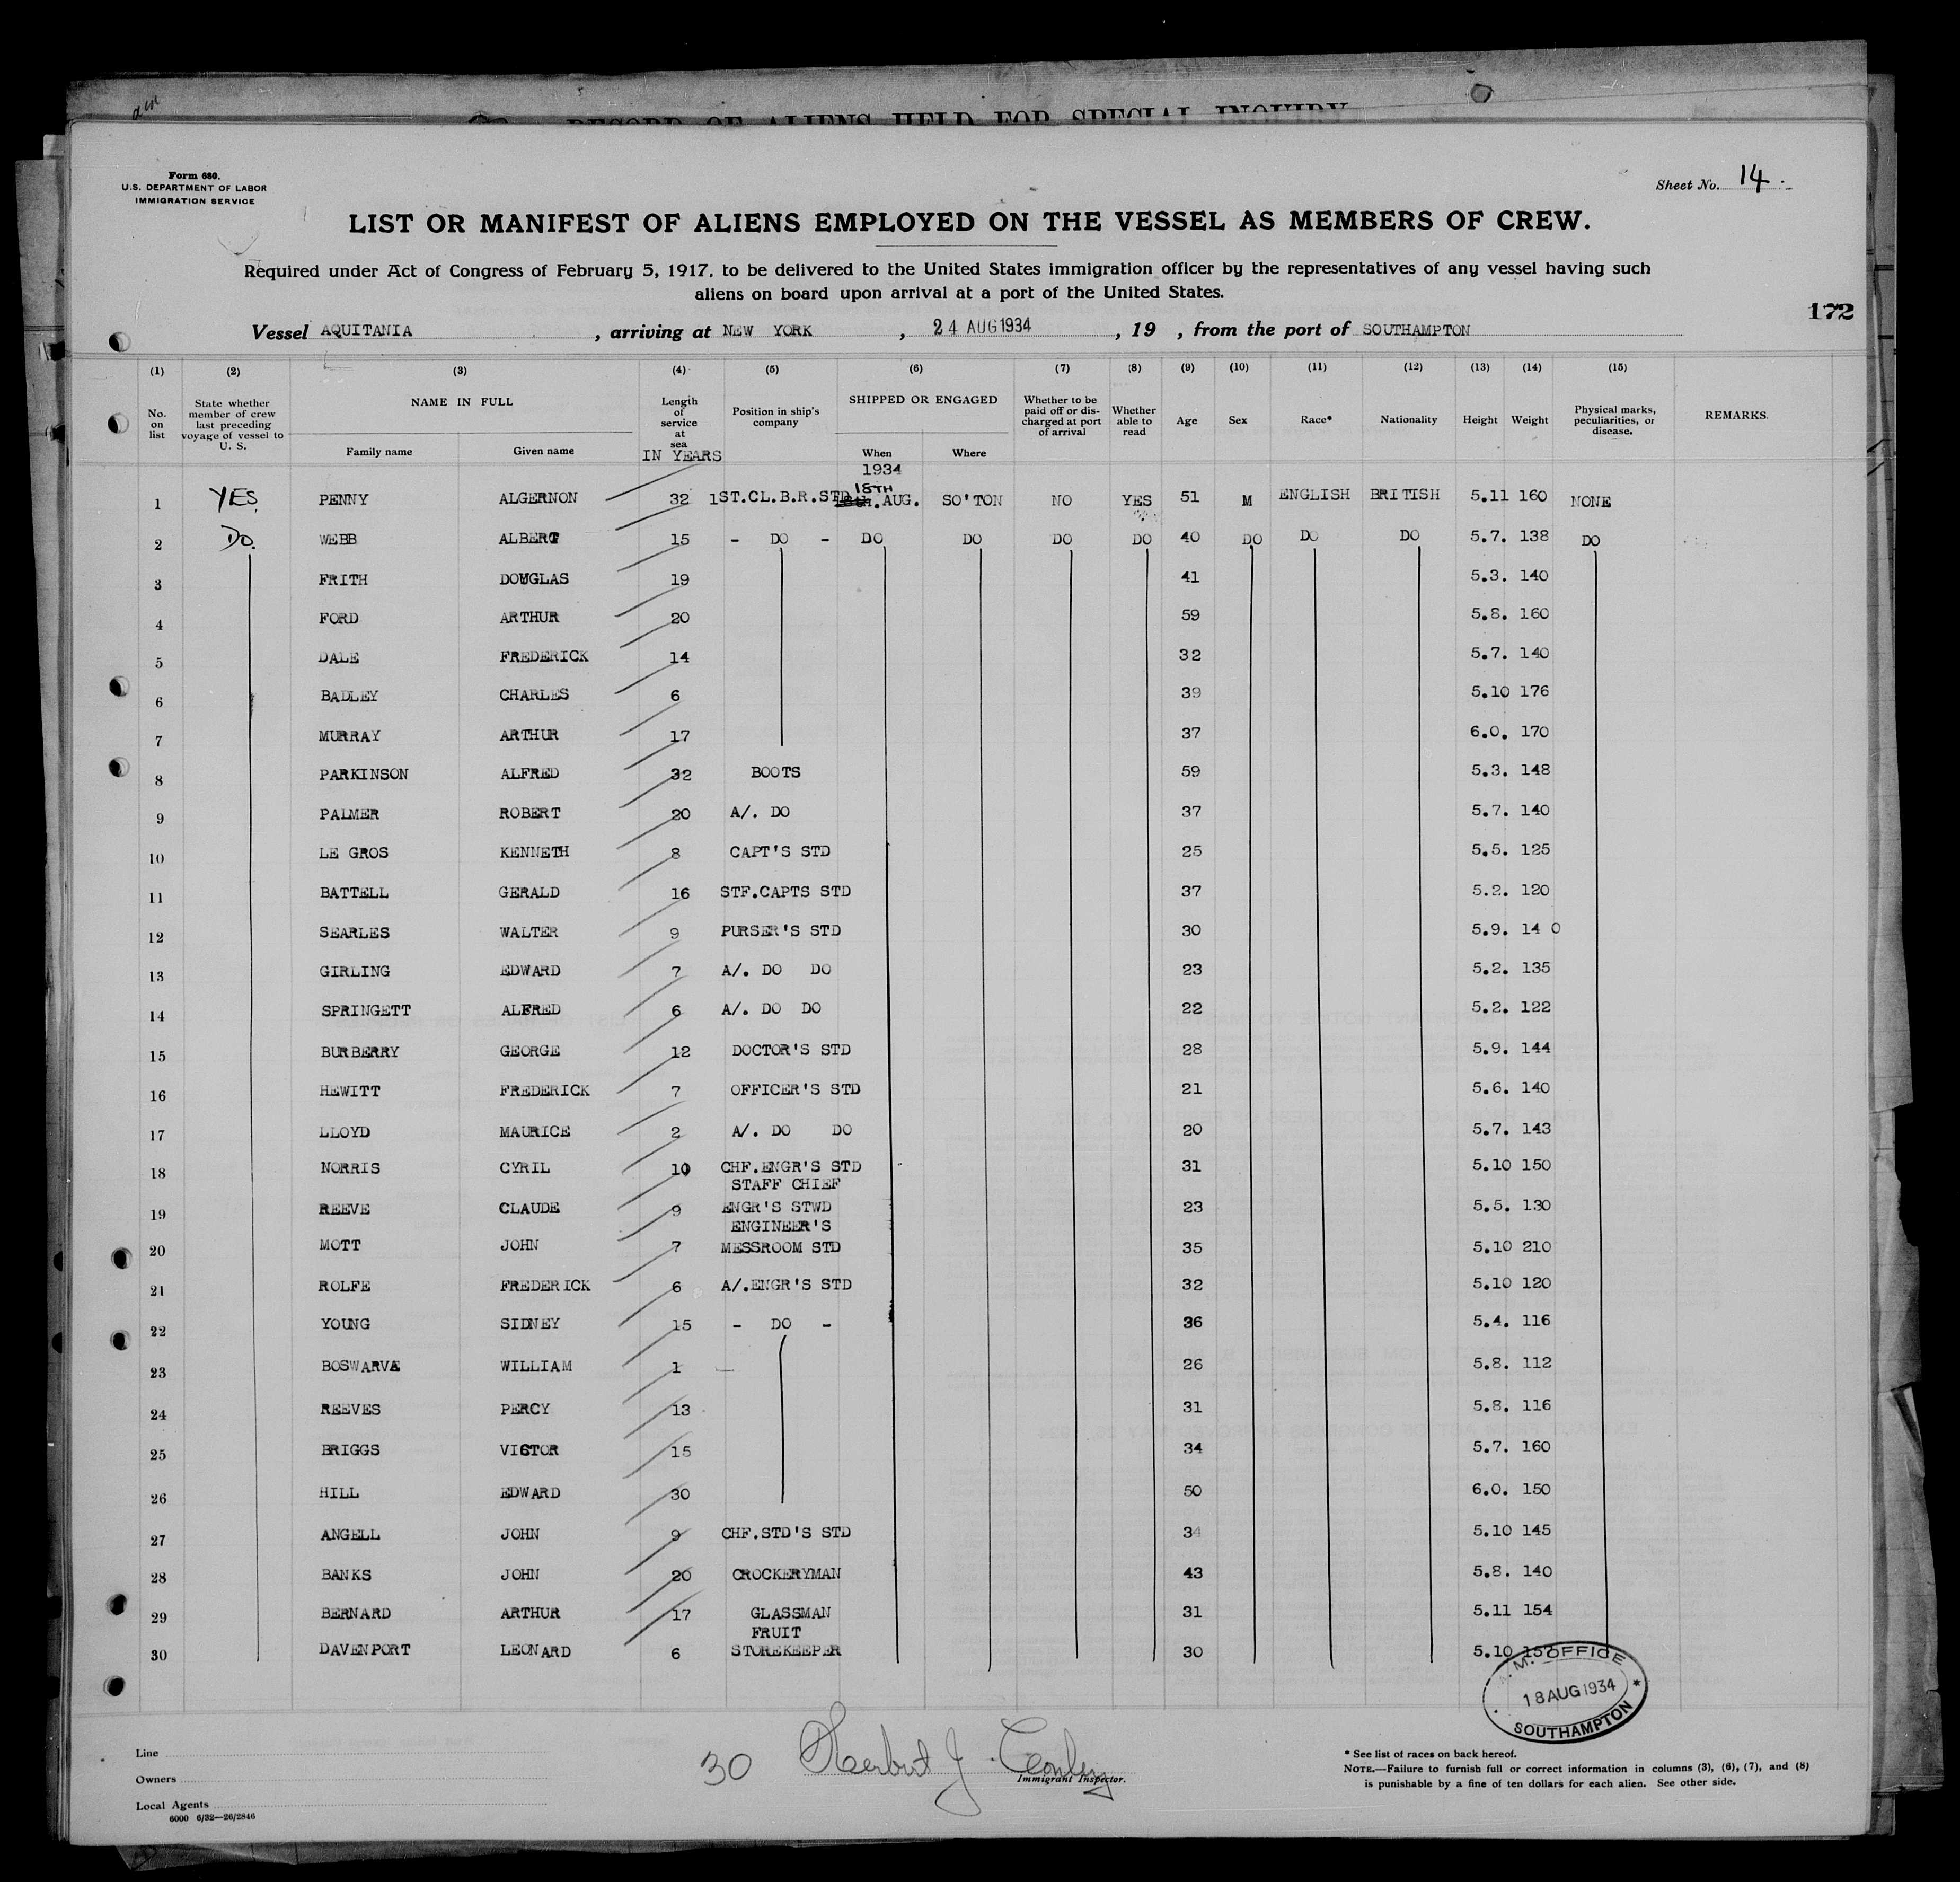 RECORD OF ALIENS HELD FOR SPECIAL INQUIRY
Form 680.
U.S. DEPARTMENT OF LABOR
IMMIGRATION SERVICE
Sheet No. 14.
LIST OR MANIFEST OF ALIENS EMPLOYED ON THE VESSEL AS MEMBERS OF CREW.
Required under Act of Congress of February 5, 1917, to be delivered to the United States immigration officer by the representatives of any vessel having such
aliens on board upon arrival at a port of the United States.
172
Vessel AQUITANIA, arriving at NEW YORK, 24 AUG 1934, 19 , from the port of SOUTHAMPTON
(1) (2) (3) (4) (5) (6) (7) (8) (9) (10) (11) (12) (13) (14) (15)
No. on list
State whether member of crew last preceding voyage of vessel to U. S.
NAME IN FULL
Family name
Given name
Length of service at sea
IN YEARS
Position in ship's company
SHIPPED OR ENGAGED
When
Where
Whether to be paid off or discharged at port of arrival
Whether able to read
Age
Sex
Race*
Nationality
Height
Weight
Physical marks, peculiarities, or disease.
REMARKS.
1934
18TH
1 YES. PENNY ALGERNON 32 1ST.CL.B.R.STD 18th.AUG. SO'TON NO YES 51 M ENGLISH BRITISH 5.11 160 NONE
2 DO. WEBB ALBERT 15 - DO - DO DO DO DO 40 DO DO DO 5.7. 138 DO
3 FRITH DOUGLAS 19 41 5.3. 140
4 FORD ARTHUR 20 59 5.8. 160
5 DALE FREDERICK 14 32 5.7. 140
6 BADLEY CHARLES 6 39 5.10 176
7 MURRAY ARTHUR 17 37 6.0. 170
8 PARKINSON ALFRED 32 BOOTS 59 5.3. 148
9 PALMER ROBERT 20 A/. DO 37 5.7. 140
10 LE GROS KENNETH 8 CAPT'S STD 25 5.5. 125
11 BATTELL GERALD 16 STF.CAPTS STD 37 5.2. 120
12 SEARLES WALTER 9 PURSER'S STD 30 5.9. 14 0
13 GIRLING EDWARD 7 A/. DO DO 23 5.2. 135
14 SPRINGETT ALFRED 6 A/. DO DO 22 5.2. 122
15 BURBERRY GEORGE 12 DOCTOR'S STD 28 5.9. 144
16 HEWITT FREDERICK 7 OFFICER'S STD 21 5.6. 140
17 LLOYD MAURICE 2 A/. DO DO 20 5.7. 143
18 NORRIS CYRIL 10 CHF.ENGR'S STD 31 5.10 150
STAFF CHIEF
19 REEVE CLAUDE 9 ENGR'S STWD 23 5.5. 130
ENGINEER'S
20 MOTT JOHN 7 MESSROOM STD 35 5.10 210
21 ROLFE FREDERICK 6 A/.ENGR'S STD 32 5.10 120
22 YOUNG SIDNEY 15 - DO - 36 5.4. 116
23 BOSWARVA WILLIAM 1 26 5.8. 112
24 REEVES PERCY 13 31 5.8. 116
25 BRIGGS VICTOR 15 34 5.7. 160
26 HILL EDWARD 30 50 6.0. 150
27 ANGELL JOHN 9 CHF.STD'S STD 34 5.10 145
28 BANKS JOHN 20 CROCKERYMAN 43 5.8. 140
29 BERNARD ARTHUR 17 GLASSMAN 31 5.11 154
FRUIT
30 DAVENPORT LEONARD 6 STOREKEEPER 30 5.10
M. OFFICE
18 AUG 1934
SOUTHAMPTON
Line
Owners
Local Agents
6000 6/32—26/2846
30 Herbert J.
Immigrant Inspector.
* See list of races on back hereof.
NOTE.—Failure to furnish full or correct information in columns (3), (6), (7), and (8)
is punishable by a fine of ten dollars for each alien. See other side.